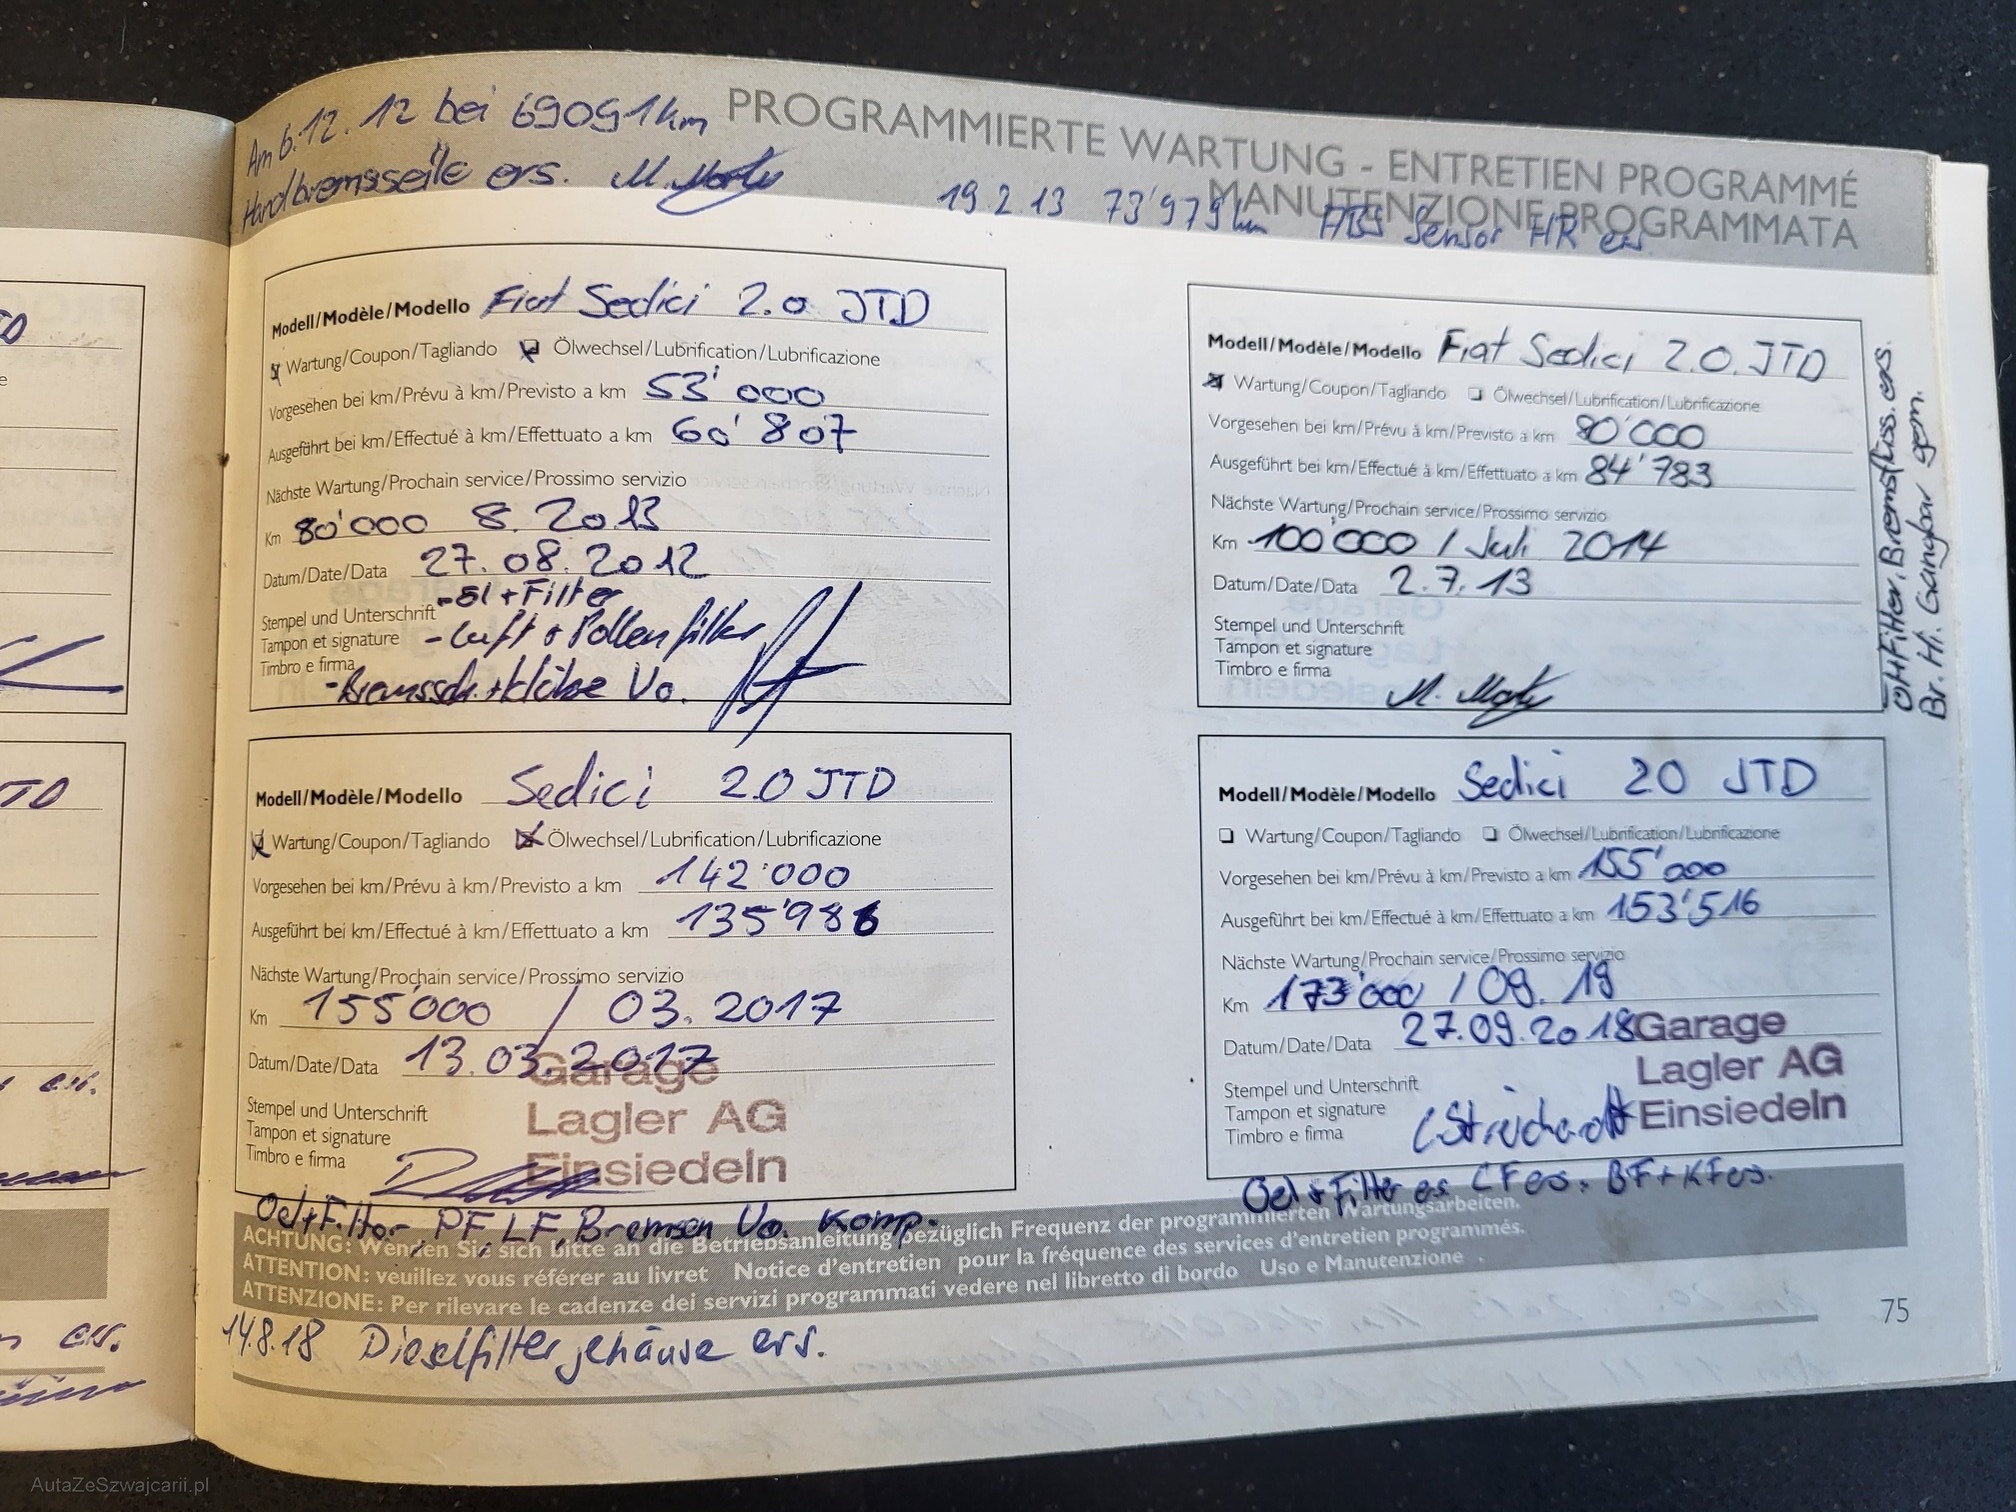 Am 6.12.12 bei 69091km
Handbremsseile ers.
PROGRAMMIERTE WARTUNG - ENTRETIEN PROGRAMMÉ
MANUTENZIONE PROGRAMMATA
19.2.13 73'979km ABS Sensor HR ers
Modell/Modèle/Modello Fiat Sedici 2.0 JTD
Wartung/Coupon/Tagliando Ölwechsel/Lubrification/Lubrificazione
Vorgesehen bei km/Prévu à km/Previsto a km 53'000
Ausgeführt bei km/Effectué à km/Effettuato a km 60'807
Nächste Wartung/Prochain service/Prossimo servizio
Km 80'000 8.2013
Datum/Date/Data 27.08.2012
Stempel und Unterschrift
Tampon et signature
Timbro e firma
-Öl+Filter
-Luft+Pollenfilter
-Bremssch.+klötze Vo.
Modell/Modèle/Modello Fiat Sedici 2.0 JTD
Wartung/Coupon/Tagliando Ölwechsel/Lubrification/Lubrificazione
Vorgesehen bei km/Prévu à km/Previsto a km 80'000
Ausgeführt bei km/Effectué à km/Effettuato a km 84'783
Nächste Wartung/Prochain service/Prossimo servizio
Km 100'000 / Juli 2014
Datum/Date/Data 2.7.13
Stempel und Unterschrift
Tampon et signature
Timbro e firma
Öl+Filter, Bremsflüss. ers.
Br. Hi. Gangbar gem.
Modell/Modèle/Modello Sedici 2.0 JTD
Wartung/Coupon/Tagliando Ölwechsel/Lubrification/Lubrificazione
Vorgesehen bei km/Prévu à km/Previsto a km 142'000
Ausgeführt bei km/Effectué à km/Effettuato a km 135'986
Nächste Wartung/Prochain service/Prossimo servizio
Km 155'000 / 03.2017
Datum/Date/Data 13.03.2017
Stempel und Unterschrift
Tampon et signature
Timbro e firma
Garage
Lagler AG
Einsiedeln
Oel+Filter, PF, LF, Bremsen Vo. komp.
Modell/Modèle/Modello Sedici 20 JTD
Wartung/Coupon/Tagliando Ölwechsel/Lubrification/Lubrificazione
Vorgesehen bei km/Prévu à km/Previsto a km 155'000
Ausgeführt bei km/Effectué à km/Effettuato a km 153'516
Nächste Wartung/Prochain service/Prossimo servizio
Km 173'000 / 09.19
Datum/Date/Data 27.09.2018
Stempel und Unterschrift
Tampon et signature
Timbro e firma
Garage
Lagler AG
Einsiedeln
Oel+Filter ers. BF+KFers.
ACHTUNG: Wenden Sie sich bitte an die Betriebsanleitung bezüglich Frequenz der programmierten Wartungsarbeiten.
ATTENTION: veuillez vous référer au livret Notice d'entretien pour la fréquence des services d'entretien programmés.
ATTENZIONE: Per rilevare le cadenze dei servizi programmati vedere nel libretto di bordo Uso e Manutenzione .
75
14.8.18 Dieselfiltergehäuse ers.
AutaZeSzwajcarii.pl